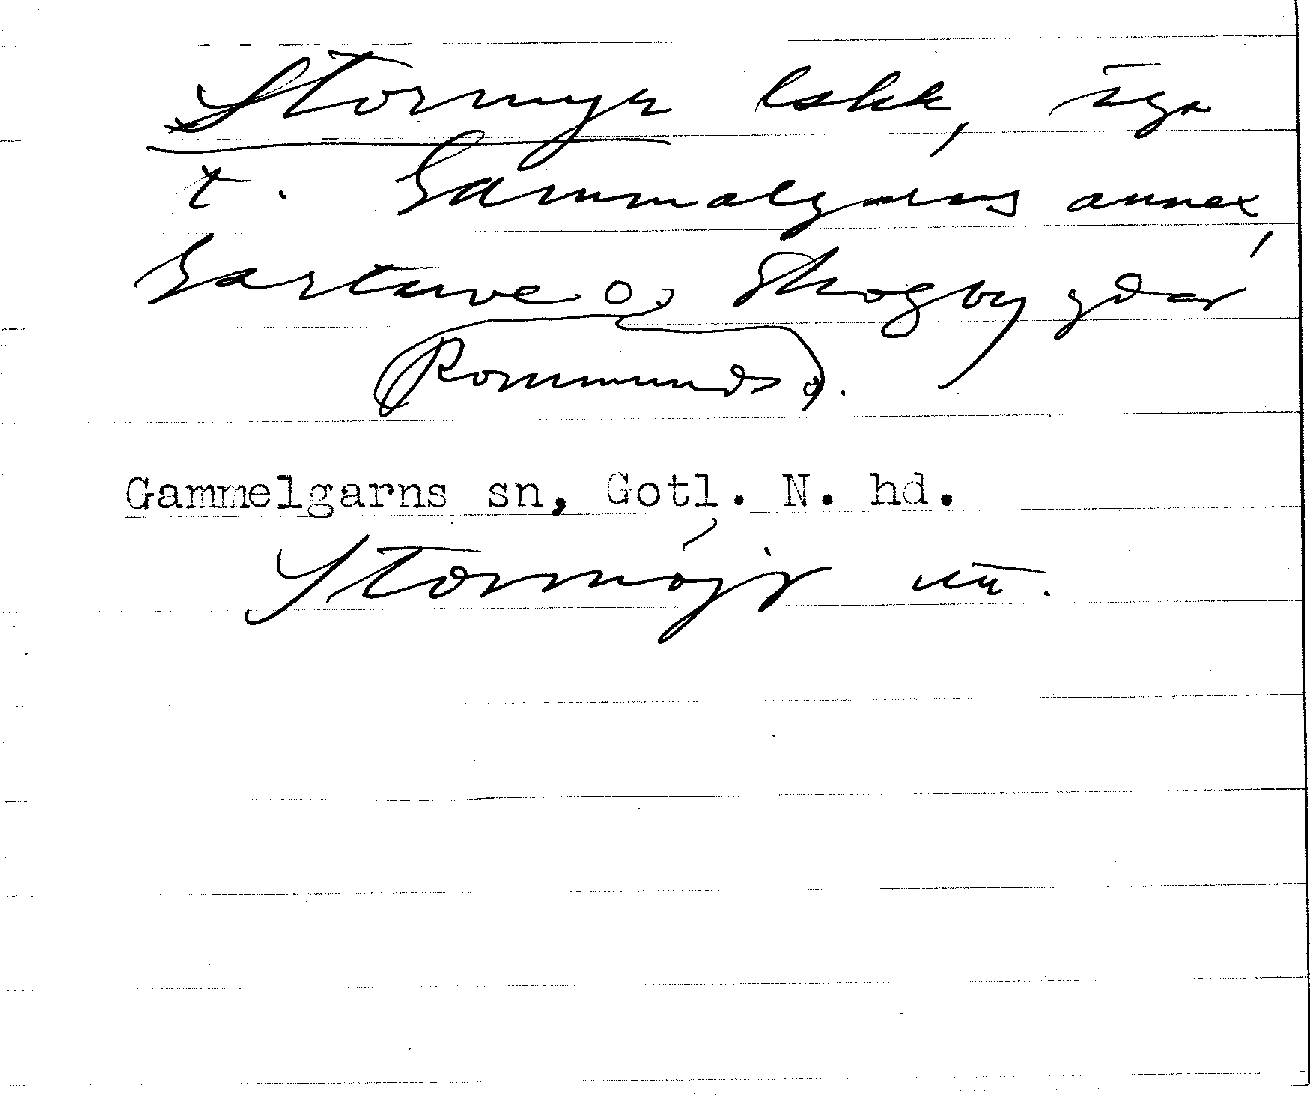 Stormyr lokk, äga
t. Gammelgarns annex,
Gartarve o, Skogby gdar
Rommunds).
Gammelgarns sn, Gotl. N. hd.
Stormöjr